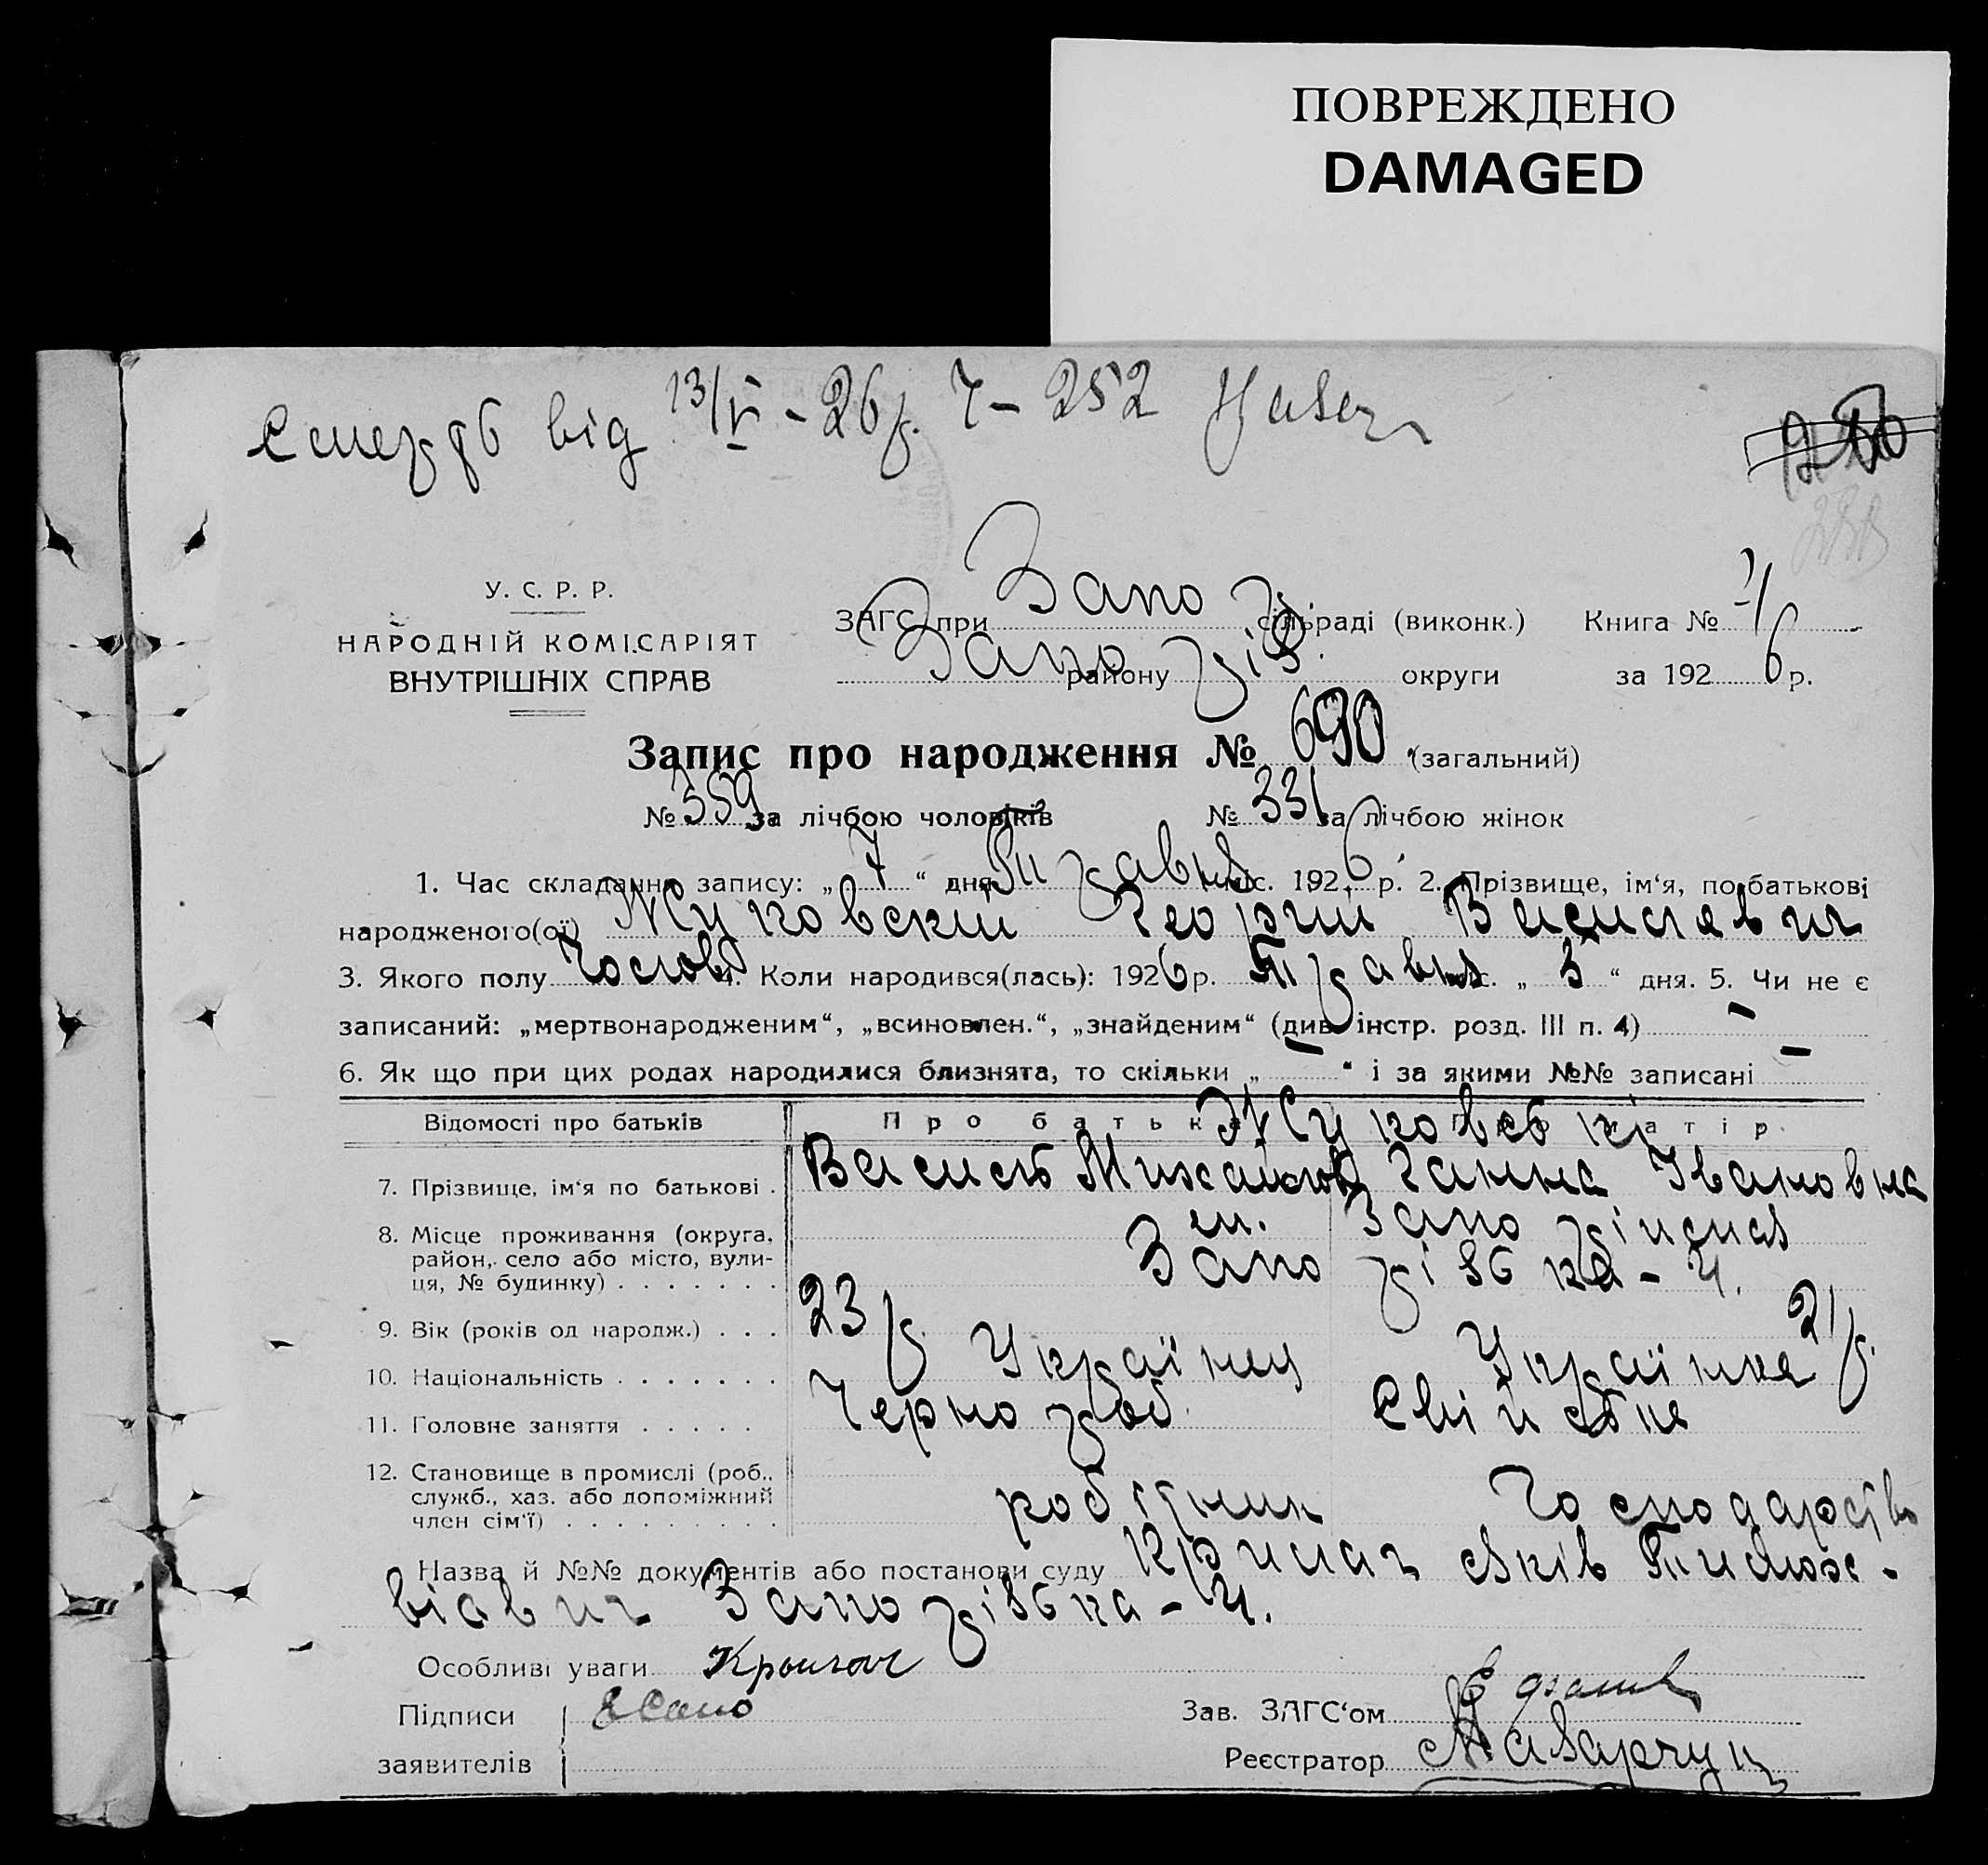 ПОВРЕЖДЕНО
DAMAGED
Смерть від 13/V - 26 р. Ч - 252
У. С. Р. Р.
НАРОДНІЙ КОМІСАРІЯТ
ВНУТРІШНІХ СПРАВ
ЗАГС при Запо сільраді (виконк.) Книга №
Запо району різ. округи за 192 6 р.
Запис про народження № 690 (загальний)
№ 359 за лічбою чоловіків № 331 за лічбою жінок
1. Час складання запису: „ 7 “ дня Травня міс. 192 6 р. 2. Прізвище, ім‘я, по батькові
народженого(ої) Жуковский Георгий Василевич
3. Якого полу Чолов 4. Коли народився(лась): 192 6 р. Травня міс. „ 3 “ дня. 5. Чи не є
записаний: „мертвонародженим“, „всиновлен.“, „знайденим“ (див. інстр. розд. III п. 4) —
6. Як що при цих родах народилися близнята, то скільки „ — “ і за якими №№ записані —
Відомості про батьків Про батька Про матір
Жуковські
7. Прізвище, ім‘я по батькові . Василь Михайлов Ганна Івановна
8. Місце проживання (округа, район, село або місто, вулиця, № будинку) . . . . . . .
9. Вік (років од народж.) . . . 23 р. 21 р.
10. Національність . . . . . . . Українец Українка
11. Головне заняття . . . . . Чернороб.
12. Становище в промислі (роб., служб., хаз. або допоміжний член сім‘ї) . . . . . . . . . робітник Господарство
Назва й №№ документів або постанови суду Яків
Особливі уваги
Підписи
заявителів
Зав. ЗАГС‘ом
Реєстратор